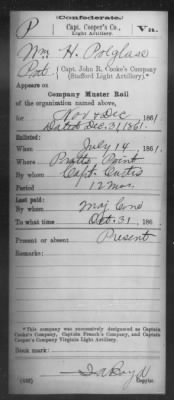 (Confederate.)
P Capt. Cooper's Co., Va.
Light Artillery.*
Wm H. Polglase
Pvt., Capt. John R. Cooke's Company
(Stafford Light Artillery).*
Appears on
Company Muster Roll
of the organization named above,
for Nov & Dec, 1861.
Dated Dec. 31, 1861.
Enlisted:
When July 14, 1861.
Where Pratts Point
By whom Capt. Curtis
Period 12 mos.
Last paid:
By whom Maj. Cone
To what time Oct. 31, 186
Present or absent Present
Remarks:
*This company was successively designated as Captain
Cooke's Company, Captain French's Company, and Captain
Cooper's Company Virginia Light Artillery.
Book mark:
Copyist.